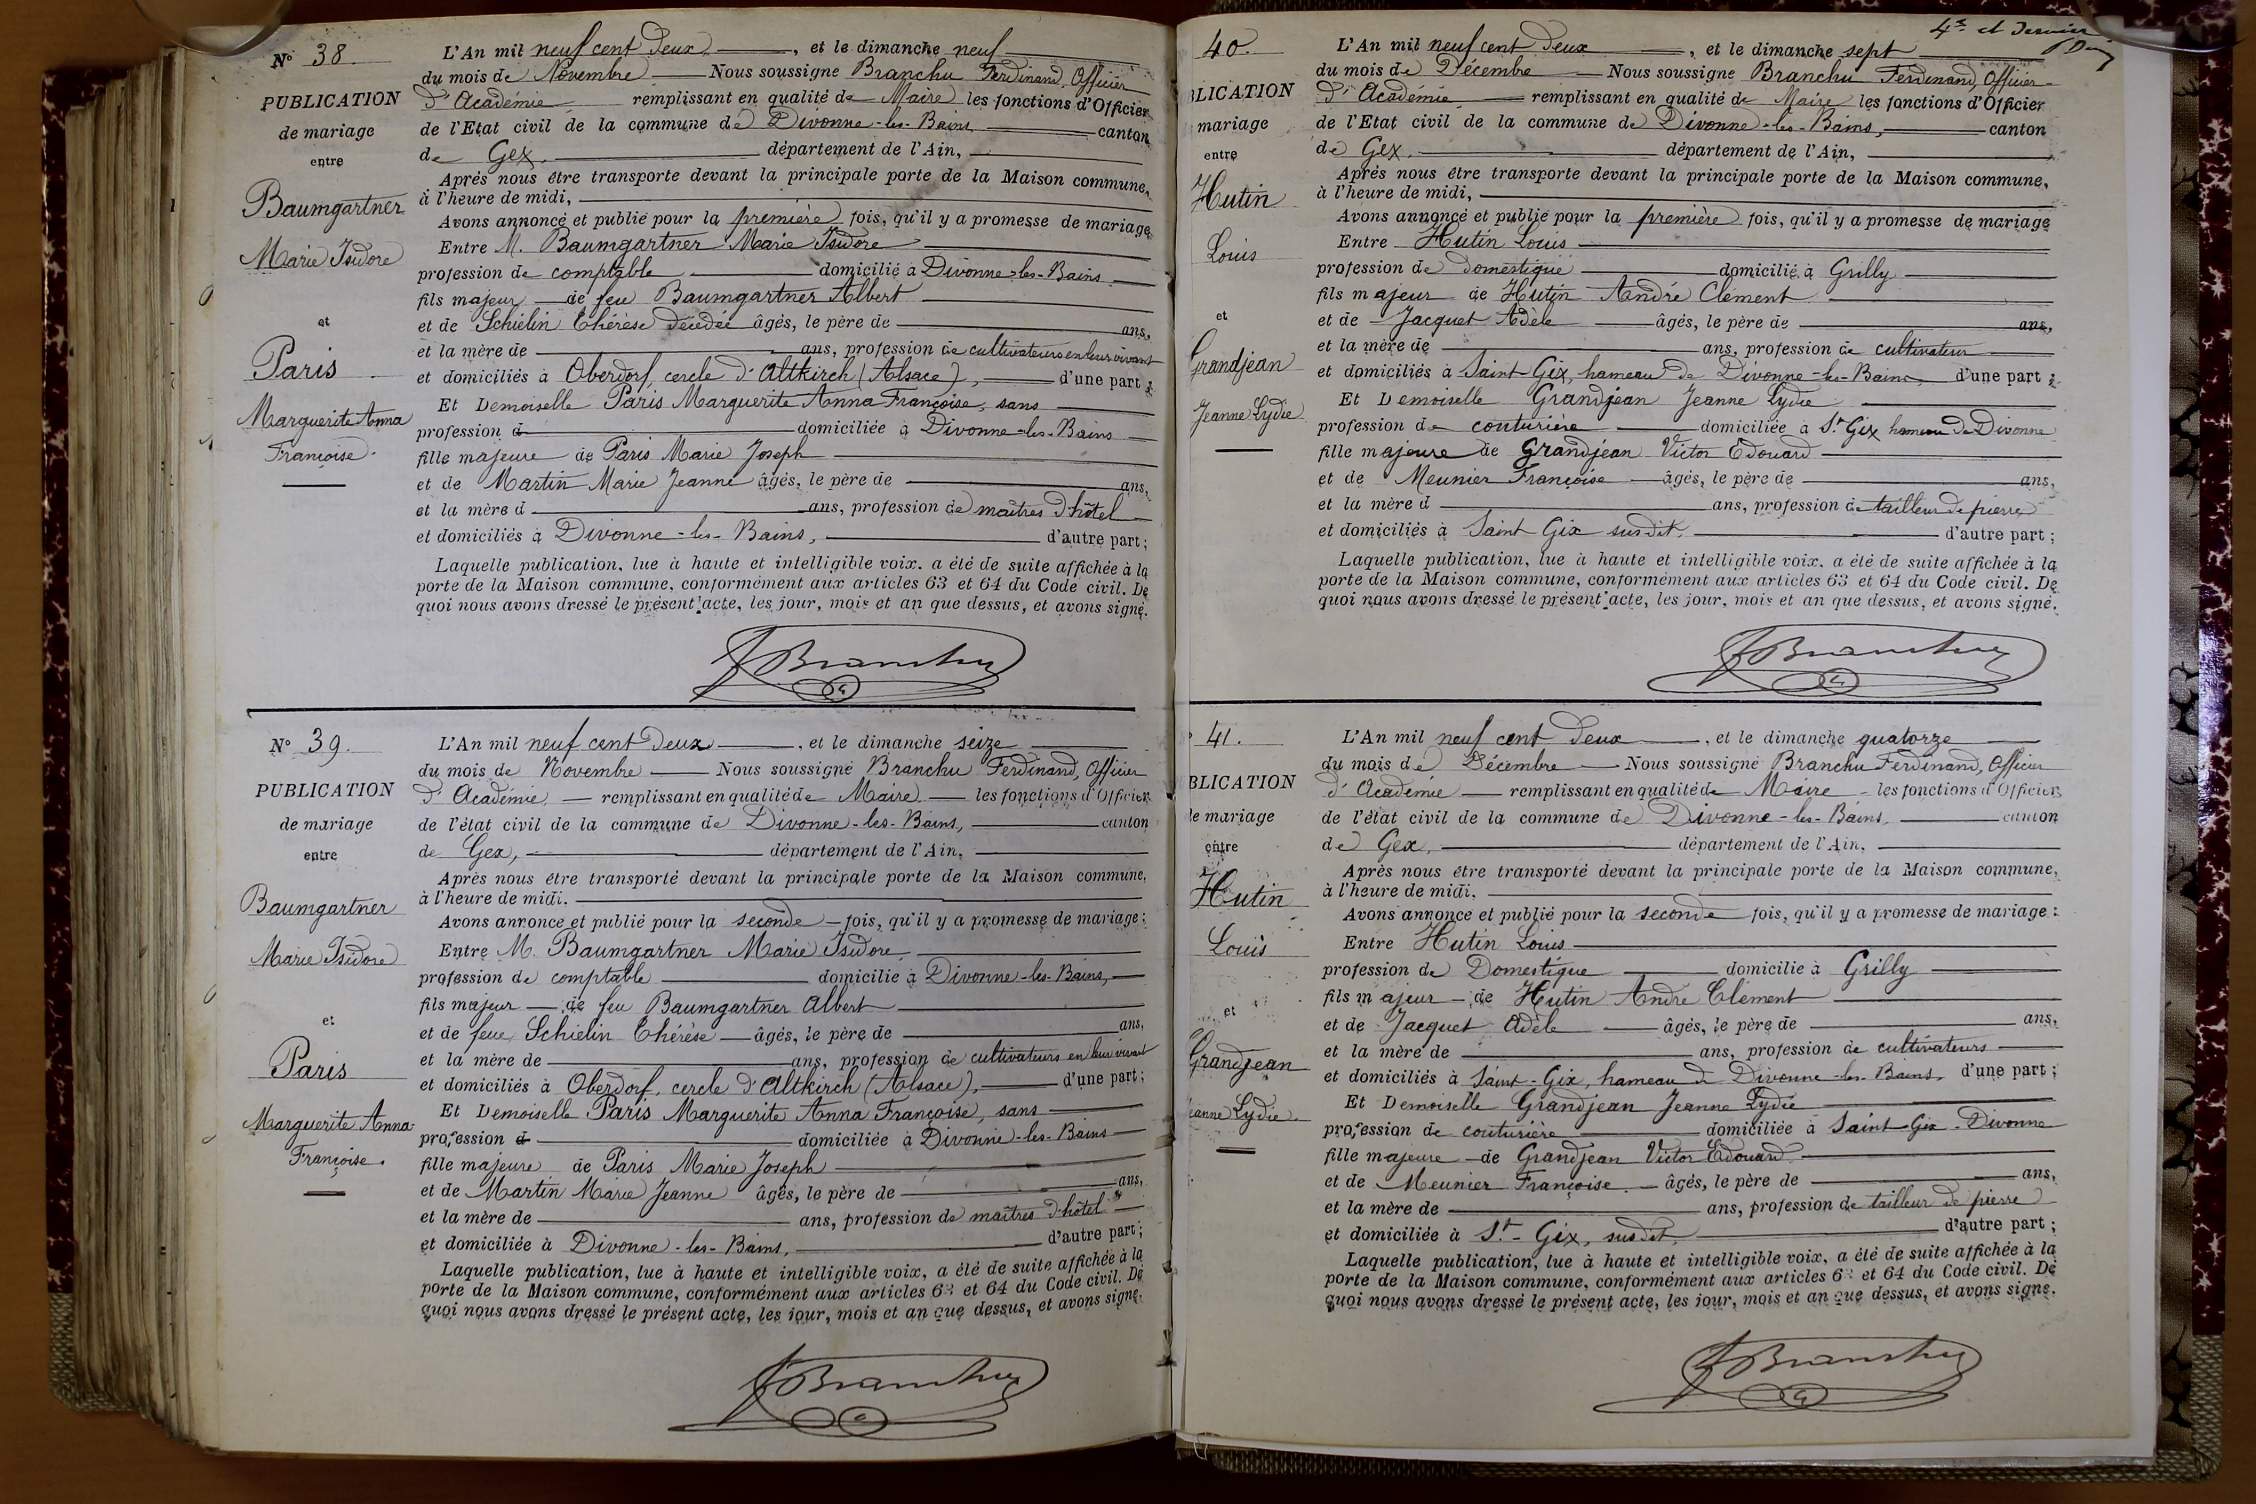 N° 38.
PUBLICATION
de mariage
entre
Baumgartner
Marie Isidore
et
Paris
Marguerite Anna
Françoise.
L'An mil neuf cent deux, et le dimanche neuf
du mois de Novembre Nous soussigné Branchu Ferdinand, Officier
d'Académie remplissant en qualité de Maire les fonctions d'Officier
de l'Etat civil de la commune de Divonne-les-Bains, canton
de Gex. département de l'Ain,
Après nous être transporté devant la principale porte de la Maison commune,
à l'heure de midi,
Avons annoncé et publié pour la première fois, qu'il y a promesse de mariage
Entre M. Baumgartner Marie Isidore
profession de comptable domicilié à Divonne-les-Bains.
fils majeur de feu Baumgartner Albert
et de Schielin Thérèse décédée âgés, le père de ans,
et la mère de ans, profession de cultivateurs en leur vivant
et domiciliés à Oberdorf, cercle d'Altkirch (Alsace), d'une part ;
Et Demoiselle Paris Marguerite Anna Françoise, sans
profession d domiciliée à Divonne-les-Bains
fille majeure de Paris Marie Joseph
et de Martin Marie Jeanne âgés, le père de ans,
et la mère d ans, profession de maîtres d'hôtel
et domiciliés à Divonne-les-Bains, d'autre part ;
Laquelle publication, lue à haute et intelligible voix, a été de suite affichée à la
porte de la Maison commune, conformément aux articles 63 et 64 du Code civil. De
quoi nous avons dressé le présent acte, les jour, mois et an que dessus, et avons signé.
F Branchu
N° 39.
PUBLICATION
de mariage
entre
Baumgartner
Marie Isidore
et
Paris
Marguerite Anna
Françoise.
L'An mil neuf cent deux, et le dimanche seize
du mois de Novembre Nous soussigné Branchu Ferdinand, Officier
d'Académie, remplissant en qualité de Maire les fonctions d'Officier
de l'état civil de la commune de Divonne-les-Bains, canton
de Gex, département de l'Ain,
Après nous être transporté devant la principale porte de la Maison commune,
à l'heure de midi.
Avons annoncé et publié pour la seconde fois, qu'il y a promesse de mariage :
Entre M. Baumgartner Marie Isidore,
profession de comptable domicilié à Divonne-les-Bains,
fils majeur de feu Baumgartner Albert
et de feue Schielin Thérèse âgés, le père de ans,
et la mère de ans, profession de cultivateurs en leur vivant
et domiciliés à Oberdorf, cercle d'Altkirch (Alsace), d'une part ;
Et Demoiselle Paris Marguerite Anna Françoise, sans
profession d domiciliée à Divonne-les-Bains
fille majeure de Paris Marie Joseph
et de Martin Marie Jeanne âgés, le père de ans,
et la mère de ans, profession de maîtres d'hôtel
et domiciliée à Divonne-les-Bains, d'autre part ;
Laquelle publication, lue à haute et intelligible voix, a été de suite affichée à la
porte de la Maison commune, conformément aux articles 63 et 64 du Code civil. De
quoi nous avons dressé le présent acte, les jour, mois et an que dessus, et avons signé.
F Branchu
4e et dernier
40.
BLICATION
mariage
entre
Hutin
Louis
et
Grandjean
Jeanne Lydie
L'An mil neuf cent deux, et le dimanche sept
du mois de Décembre Nous soussigné Branchu Ferdinand, Officier
d'Académie, remplissant en qualité de Maire les fonctions d'Officier
de l'Etat civil de la commune de Divonne-les-Bains, canton
de Gex. département de l'Ain,
Après nous être transporté devant la principale porte de la Maison commune,
à l'heure de midi,
Avons annoncé et publié pour la première fois, qu'il y a promesse de mariage
Entre Hutin Louis
profession de domestique domicilié à Grilly
fils majeur de Hutin André Clément
et de Jacquet Adèle âgés, le père de ans,
et la mère de ans, profession de cultivateur
et domiciliés à Saint-Gix, hameau de Divonne-les-Bains, d'une part ;
Et Demoiselle Grandjean Jeanne Lydie
profession de couturière domiciliée à St Gix hameau de Divonne
fille majeure de Grandjean Victor Edouard
et de Meunier Françoise âgés, le père de ans,
et la mère d ans, profession de tailleur de pierre
et domiciliés à Saint Gix susdit. d'autre part ;
Laquelle publication, lue à haute et intelligible voix, a été de suite affichée à la
porte de la Maison commune, conformément aux articles 63 et 64 du Code civil. De
quoi nous avons dressé le présent acte, les jour, mois et an que dessus, et avons signé.
F Branchu
41.
BLICATION
de mariage
entre
Hutin
Louis
et
Grandjean
eanne Lydie
L'An mil neuf cent deux, et le dimanche quatorze
du mois de Décembre Nous soussigné Branchu Ferdinand, Officier
d'Académie remplissant en qualité de Maire les fonctions d'Officier
de l'état civil de la commune de Divonne-les-Bains, canton
de Gex, département de l'Ain,
Après nous être transporté devant la principale porte de la Maison commune,
à l'heure de midi.
Avons annoncé et publié pour la seconde fois, qu'il y a promesse de mariage :
Entre Hutin Louis
profession de Domestique domicilié à Grilly
fils majeur de Hutin André Clément
et de Jacquet Adèle âgés, le père de ans,
et la mère de ans, profession de cultivateurs
et domiciliés à Saint-Gix, hameau de Divonne-les-Bains, d'une part ;
Et Demoiselle Grandjean Jeanne Lydie
profession de couturière domiciliée à Saint-Gix-Divonne
fille majeure de Grandjean Victor Edouard
et de Meunier Françoise. âgés, le père de ans,
et la mère de ans, profession de tailleur de pierre
et domiciliée à St-Gix, susdit, d'autre part ;
Laquelle publication, lue à haute et intelligible voix, a été de suite affichée à la
porte de la Maison commune, conformément aux articles 63 et 64 du Code civil. De
quoi nous avons dressé le présent acte, les jour, mois et an que dessus, et avons signé.
F Branchu